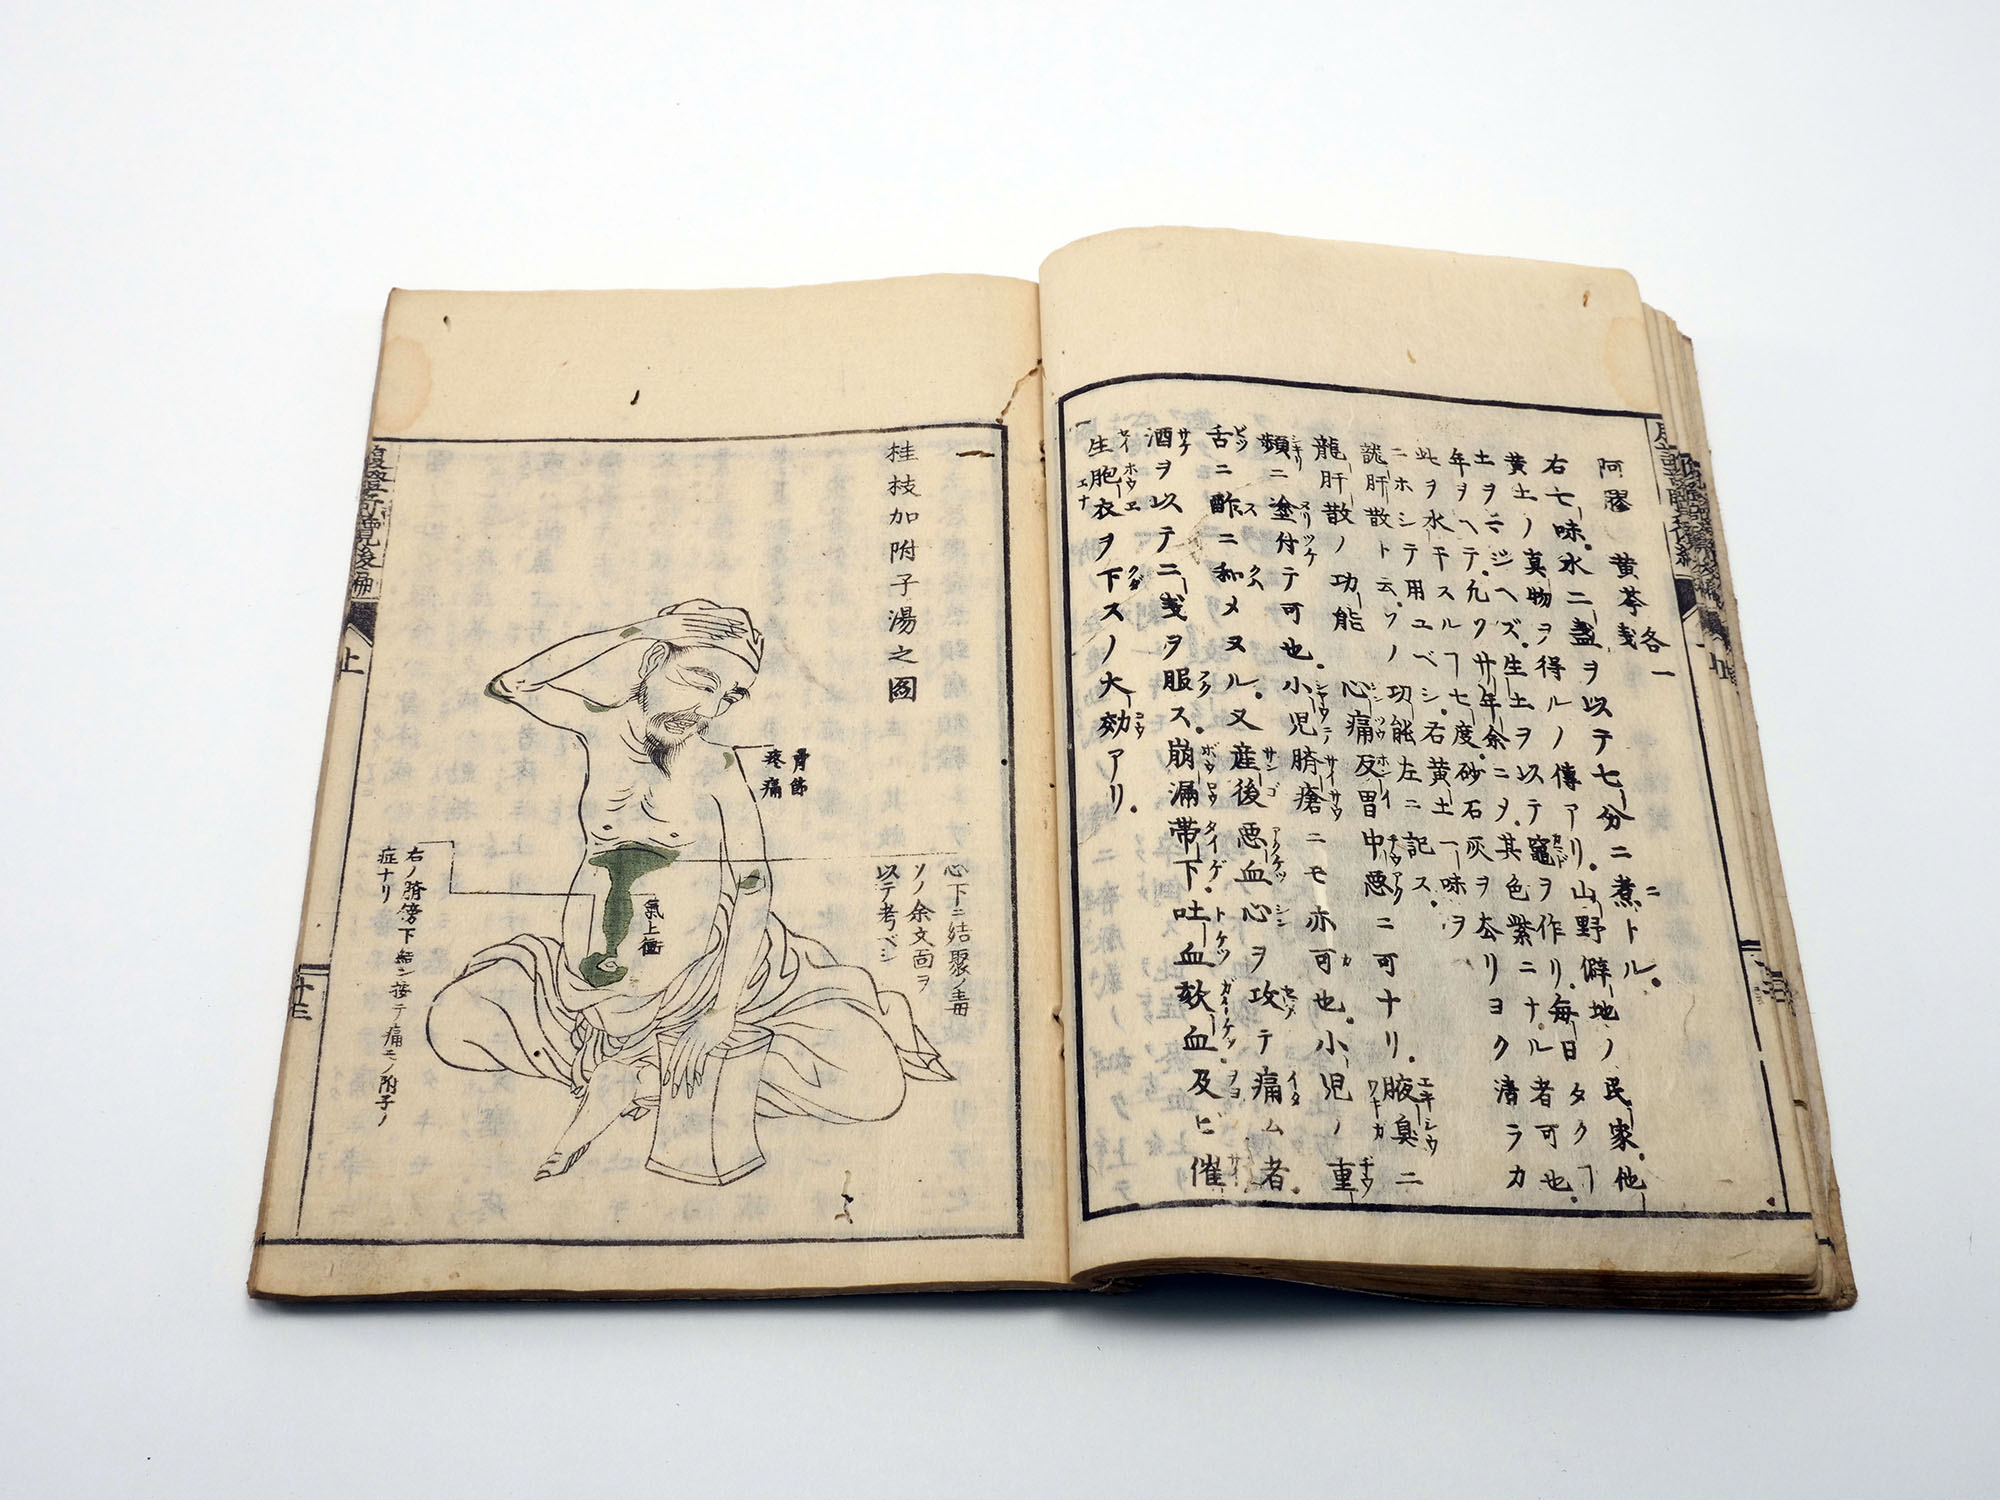 阿膠　黄芩各一戔
右七味。水二盞ヲ以テ七分ニ煮トル。
黄土ノ真物ヲ得ルノ傳アリ。山野僻地ノ民家。他
土ヲマジヘズ。生土ヲ以テ竈ヲ作リ。毎日タクヿ
年ヲヘテ。凡ソ廿年余ニヲ。其色紫ニナル者可也。
此ヲ水干スルヿ七度。砂石灰ヲ去リヨク清ラカ
ニホシテ用ユベシ。右黄土一味ヲ
龍肝散ト云。ソノ功能左ニ記ス。
龍肝散ノ功能　心痛及胃中悪ニ可ナリ。腋臭ニ
頻ニ塗付テ可也。小児臍瘡ニモ亦可也。小児ノ重
舌ニ酢ニ和メヌル。又産後悪血心ヲ攻テ痛ム者。
酒ヲ以テ二戔ヲ服ス。崩漏帯下。吐血欬血及ビ催
生胞衣ヲ下スノ大効アリ。
桂枝加附子湯之圖
骨節
疼痛
心下ニ結聚ノ毒
ソノ余文面ヲ
以テ考ベシ
氣上衝
右ノ臍傍下結シ按テ痛モノ附子ノ
症ナリ
腹證奇覽後編
上
十三